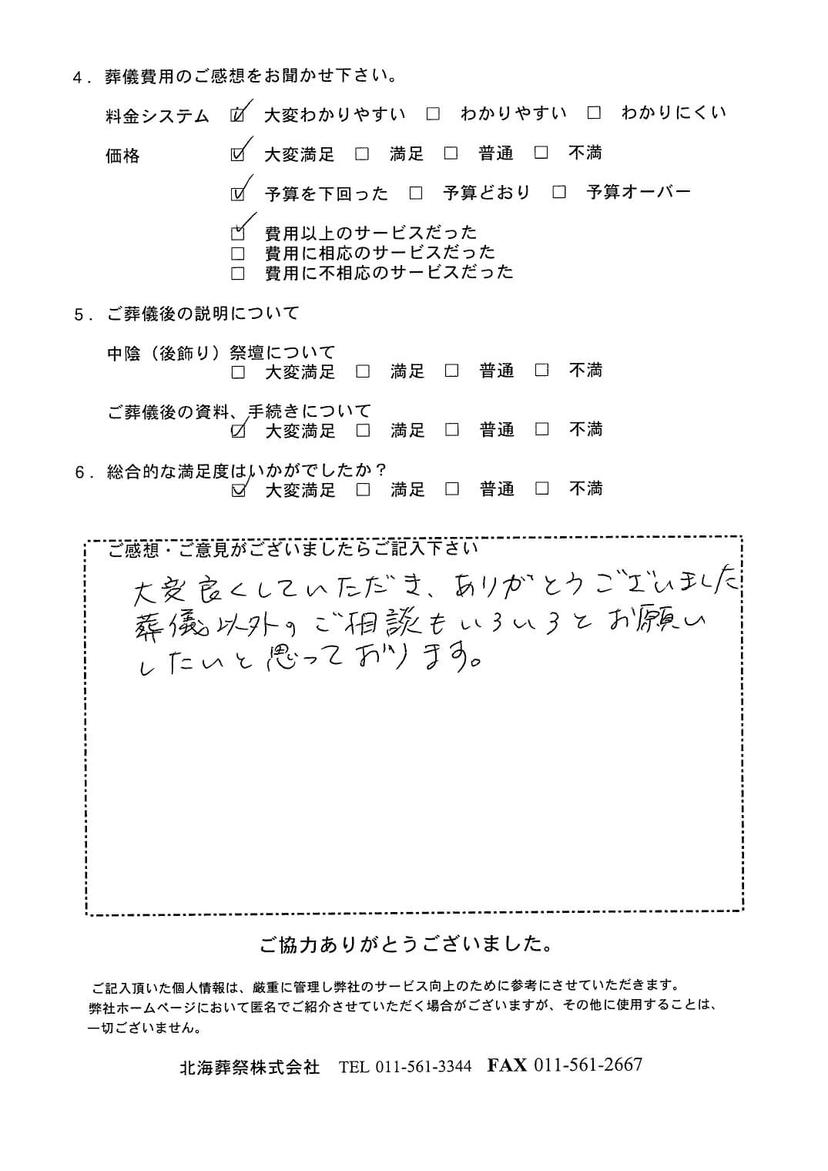 4．葬儀費用のご感想をお聞かせ下さい。
料金システム ☑ 大変わかりやすい □ わかりやすい □ わかりにくい
価格 ☑ 大変満足 □ 満足 □ 普通 □ 不満
☑ 予算を下回った □ 予算どおり □ 予算オーバー
☑ 費用以上のサービスだった
□ 費用に相応のサービスだった
□ 費用に不相応のサービスだった
5．ご葬儀後の説明について
中陰（後飾り）祭壇について
□ 大変満足 □ 満足 □ 普通 □ 不満
ご葬儀後の資料、手続きについて
☑ 大変満足 □ 満足 □ 普通 □ 不満
6．総合的な満足度はいかがでしたか？
☑ 大変満足 □ 満足 □ 普通 □ 不満
ご感想・ご意見がございましたらご記入下さい
大変良くしていただき、ありがとうございました
葬儀以外のご相談もいろいろとお願い
したいと思っております。
ご協力ありがとうございました。
ご記入頂いた個人情報は、厳重に管理し弊社のサービス向上のために参考にさせていただきます。
弊社ホームページにおいて匿名でご紹介させていただく場合がございますが、その他に使用することは、
一切ございません。
北海葬祭株式会社 TEL 011-561-3344 FAX 011-561-2667